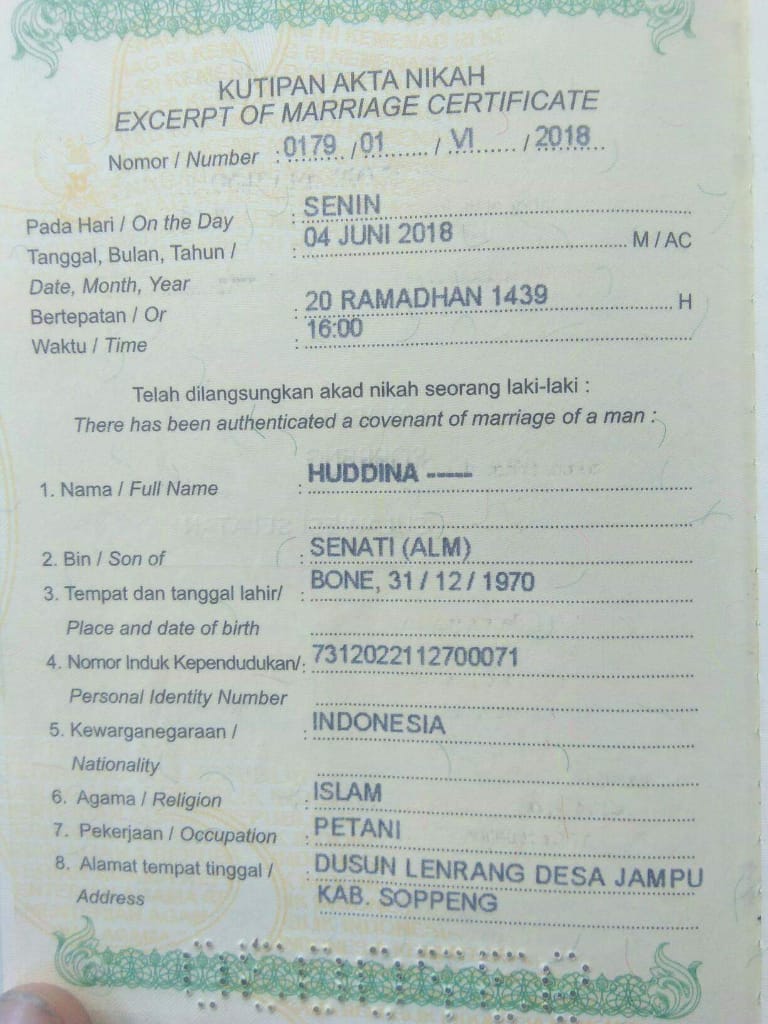 KUTIPAN AKTA NIKAH
EXCERPT OF MARRIAGE CERTIFICATE
Nomor / Number : 0179 / 01 / VI / 2018
Pada Hari / On the Day : SENIN
Tanggal, Bulan, Tahun / : 04 JUNI 2018 M / AC
Date, Month, Year
Bertepatan / Or : 20 RAMADHAN 1439 H
Waktu / Time : 16:00
Telah dilangsungkan akad nikah seorang laki-laki :
There has been authenticated a covenant of marriage of a man :
1. Nama / Full Name : HUDDINA -----
2. Bin / Son of : SENATI (ALM)
3. Tempat dan tanggal lahir/ : BONE, 31 / 12 / 1970
Place and date of birth
4. Nomor Induk Kependudukan/ : 7312022112700071
Personal Identity Number
5. Kewarganegaraan / : INDONESIA
Nationality
6. Agama / Religion : ISLAM
7. Pekerjaan / Occupation : PETANI
8. Alamat tempat tinggal / : DUSUN LENRANG DESA JAMPU
Address KAB. SOPPENG